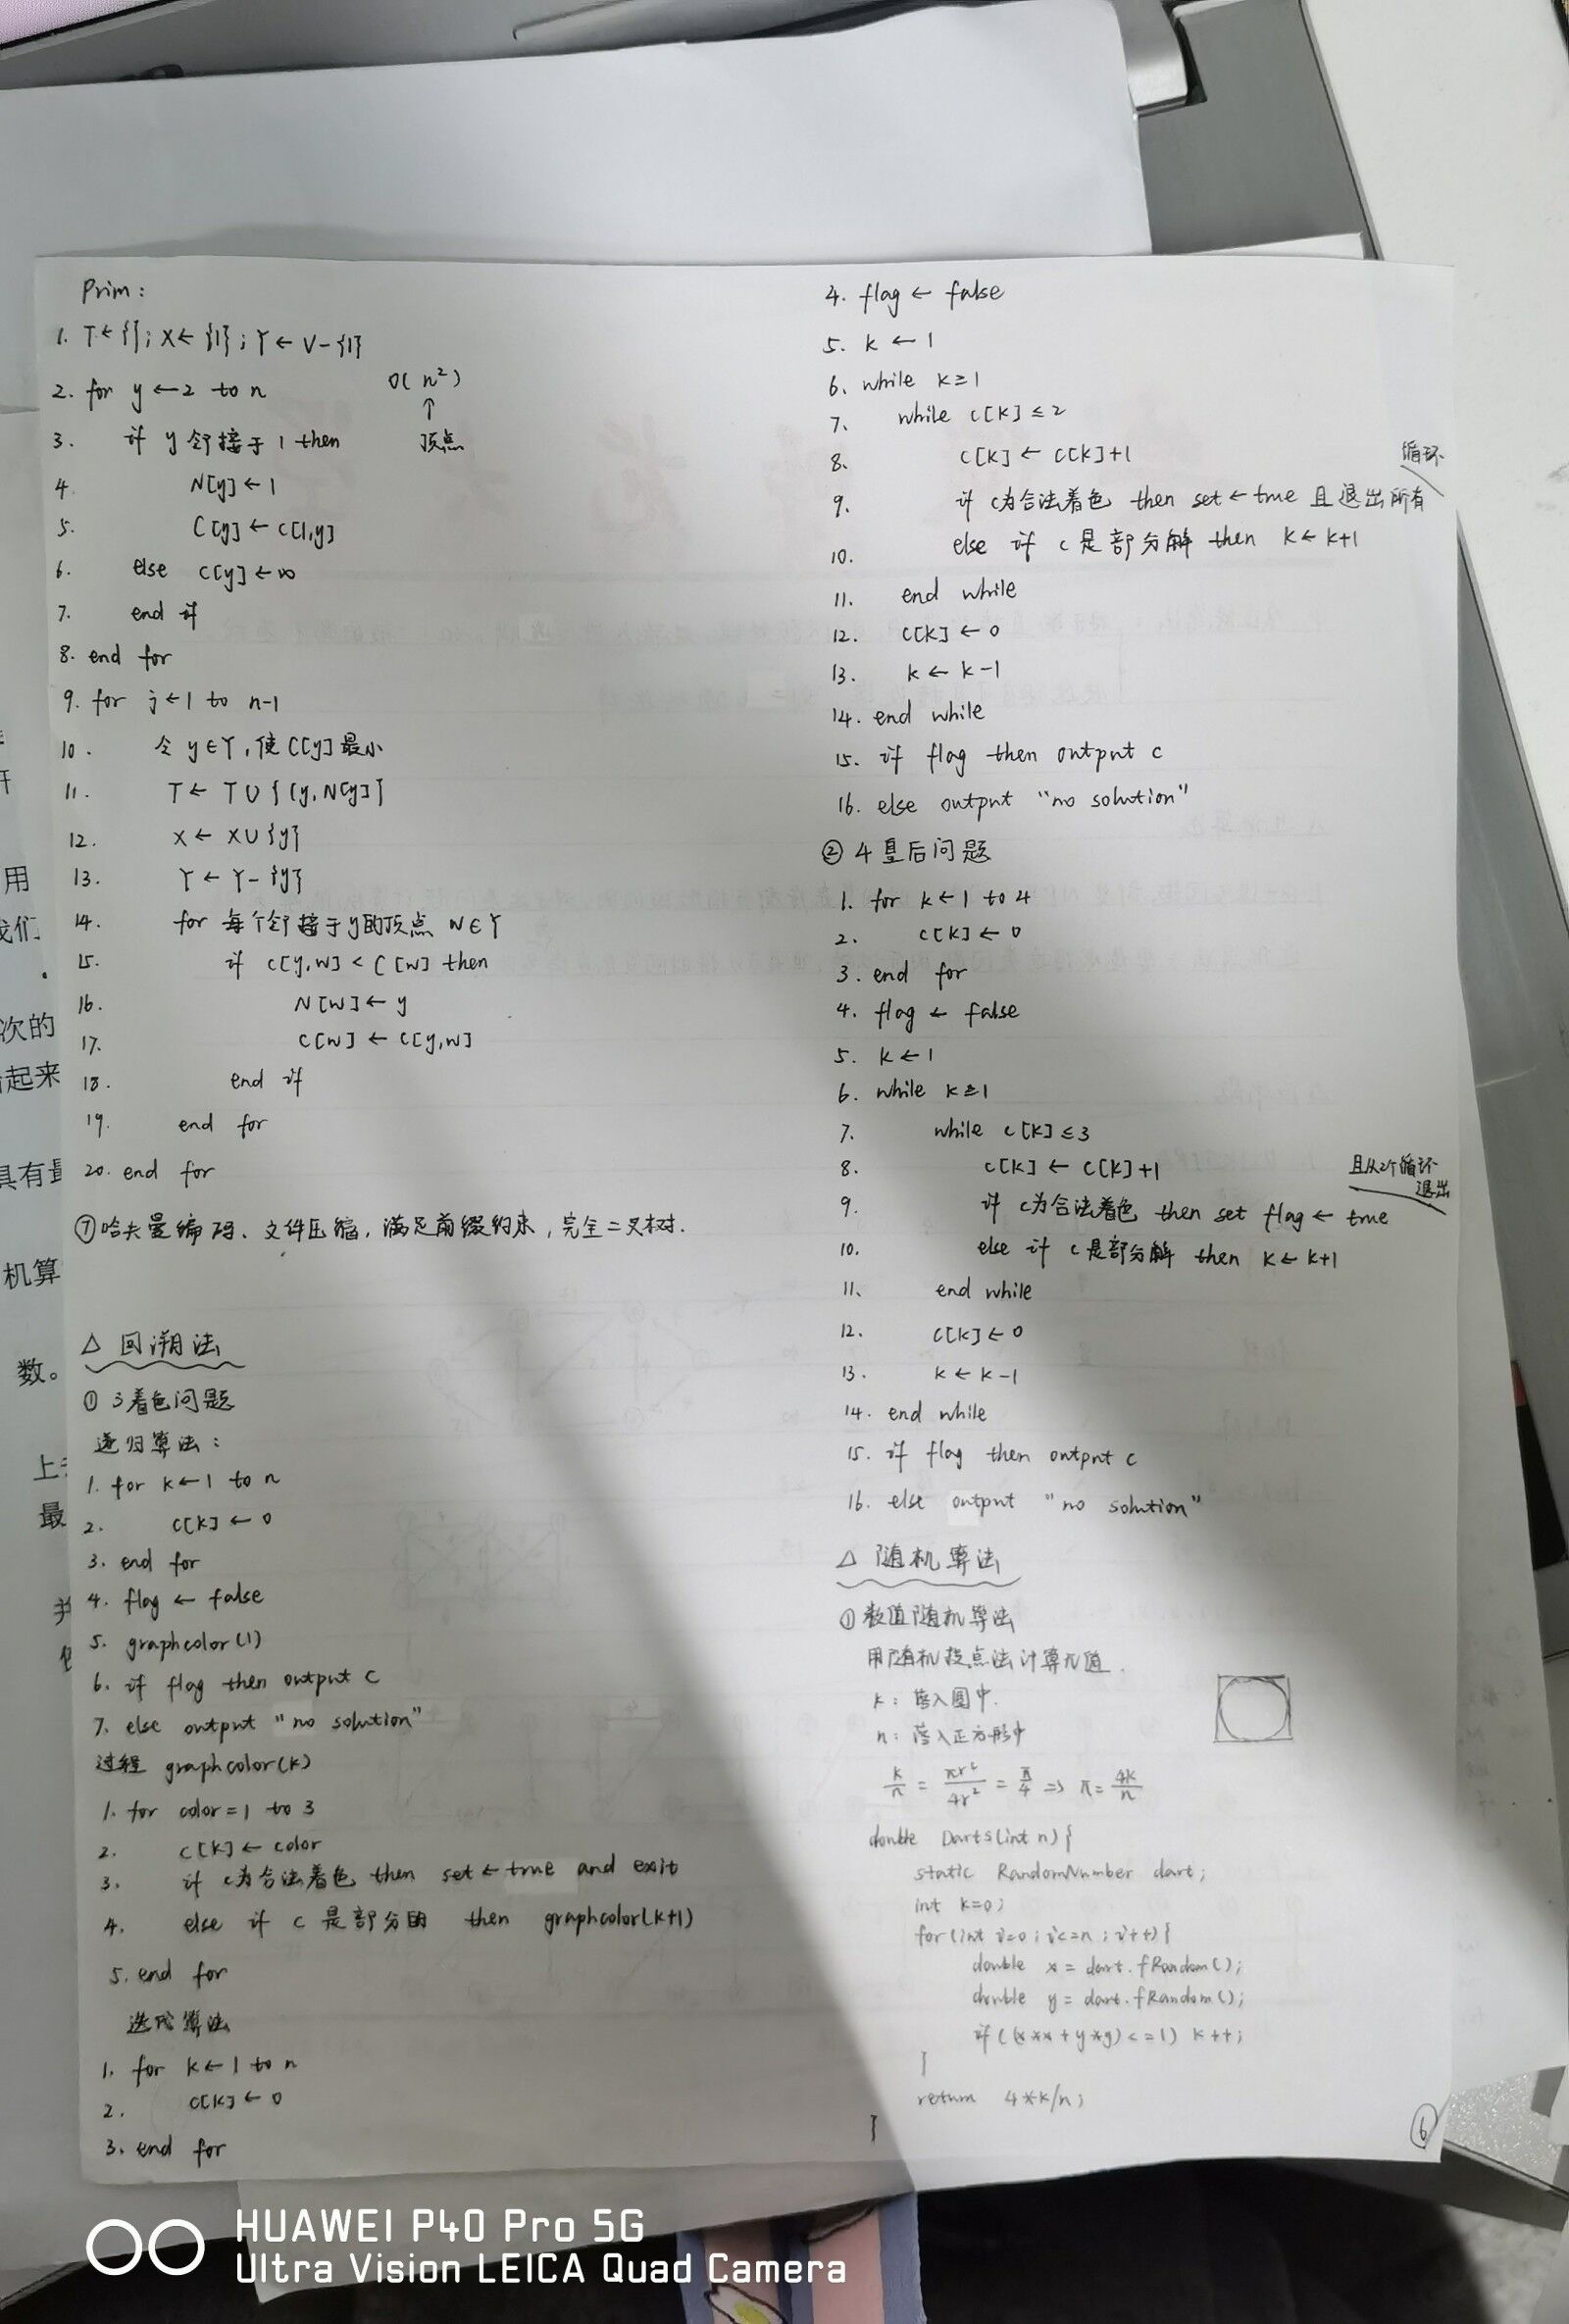 Prim:
1. T←{}; X←{1}; Y←V-{1}
2. for y←2 to n
O(n²)
↑
顶点
3. if y邻接于1 then
4. N[y]←1
5. C[y]←c[1,y]
6. else C[y]←∞
7. end if
8. end for
9. for j←1 to n-1
10. 令y∈Y,使C[y]最小
11. T←T∪{(y,N[y]}
12. X←X∪{y}
13. Y←Y-{y}
14. for 每个邻接于y的顶点 w∈Y
15. if c[y,w]<C[w] then
16. N[w]←y
17. C[w]←c[y,w]
18. end if
19. end for
20. end for
⑦哈夫曼编码、文件压缩,满足前缀约束,完全二叉树.
△ 回溯法
① 3着色问题
递归算法:
1. for k←1 to n
2. c[k]←0
3. end for
4. flag←false
5. graphcolor(1)
6. if flag then output c
7. else output "no solution"
过程 graphcolor(k)
1. for color=1 to 3
2. c[k]←color
3. if c为合法着色 then set←true and exit
4. else if c是部分的 then graphcolor(k+1)
5. end for
迭代算法
1. for k←1 to n
2. c[k]←0
3. end for
4. flag←false
5. k←1
6. while k≥1
7. while c[k]≤2
8. c[k]←c[k]+1
9. if c为合法着色 then set←true 且退出所有
循环
10. else if c是部分解 then k←k+1
11. end while
12. c[k]←0
13. k←k-1
14. end while
15. if flag then output c
16. else output "no solution"
② 4皇后问题
1. for k←1 to 4
2. c[k]←0
3. end for
4. flag←false
5. k←1
6. while k≥1
7. while c[k]≤3
8. c[k]←c[k]+1
9. if c为合法着色 then set flag←true
且从2个循环
退出
10. else if c是部分解 then k←k+1
11. end while
12. c[k]←0
13. k←k-1
14. end while
15. if flag then output c
16. else output "no solution"
△ 随机算法
①数值随机算法
用随机投点法计算π值.
k: 落入圆中.
n: 落入正方形中
k/n = πr²/4r² = π/4 ⇒ π=4k/n
double Darts(int n){
static RandomNumber dart;
int k=0;
for(int i=0;i<=n;i++){
double x=dart.fRandom();
double y=dart.fRandom();
if((x*x+y*y)<=1) k++;
}
return 4*k/n;
}
⑥
用
我们
次的
起来
具有
机算
数。
上
最
HUAWEI P40 Pro 5G
Ultra Vision LEICA Quad Camera